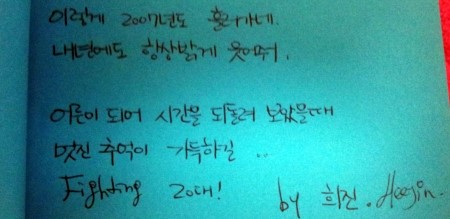 이렇게 2007년도 흘러가네.
내년에도 항상밝게 웃어줘.
어른이 되어 시간을 되돌려 보았을때
멋진 추억이 가득하길 ..
Fighting 20대!
by 희진. Heejin.